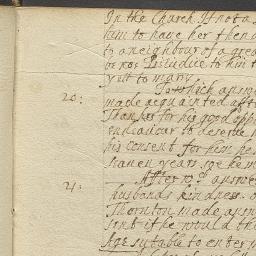 In the Church. If not a
him to have her then
to a neighbour of a grea
be no Prejudice to him
yet to marry.
20: To which answ
made acquainted aft
Thankes for his good opp
endeavour to deserve
his Consent for him he
seaven years age he
21: After wch answe
husbands kindness. o
Thornton made answ
sent if he would the
Age sutable to enter